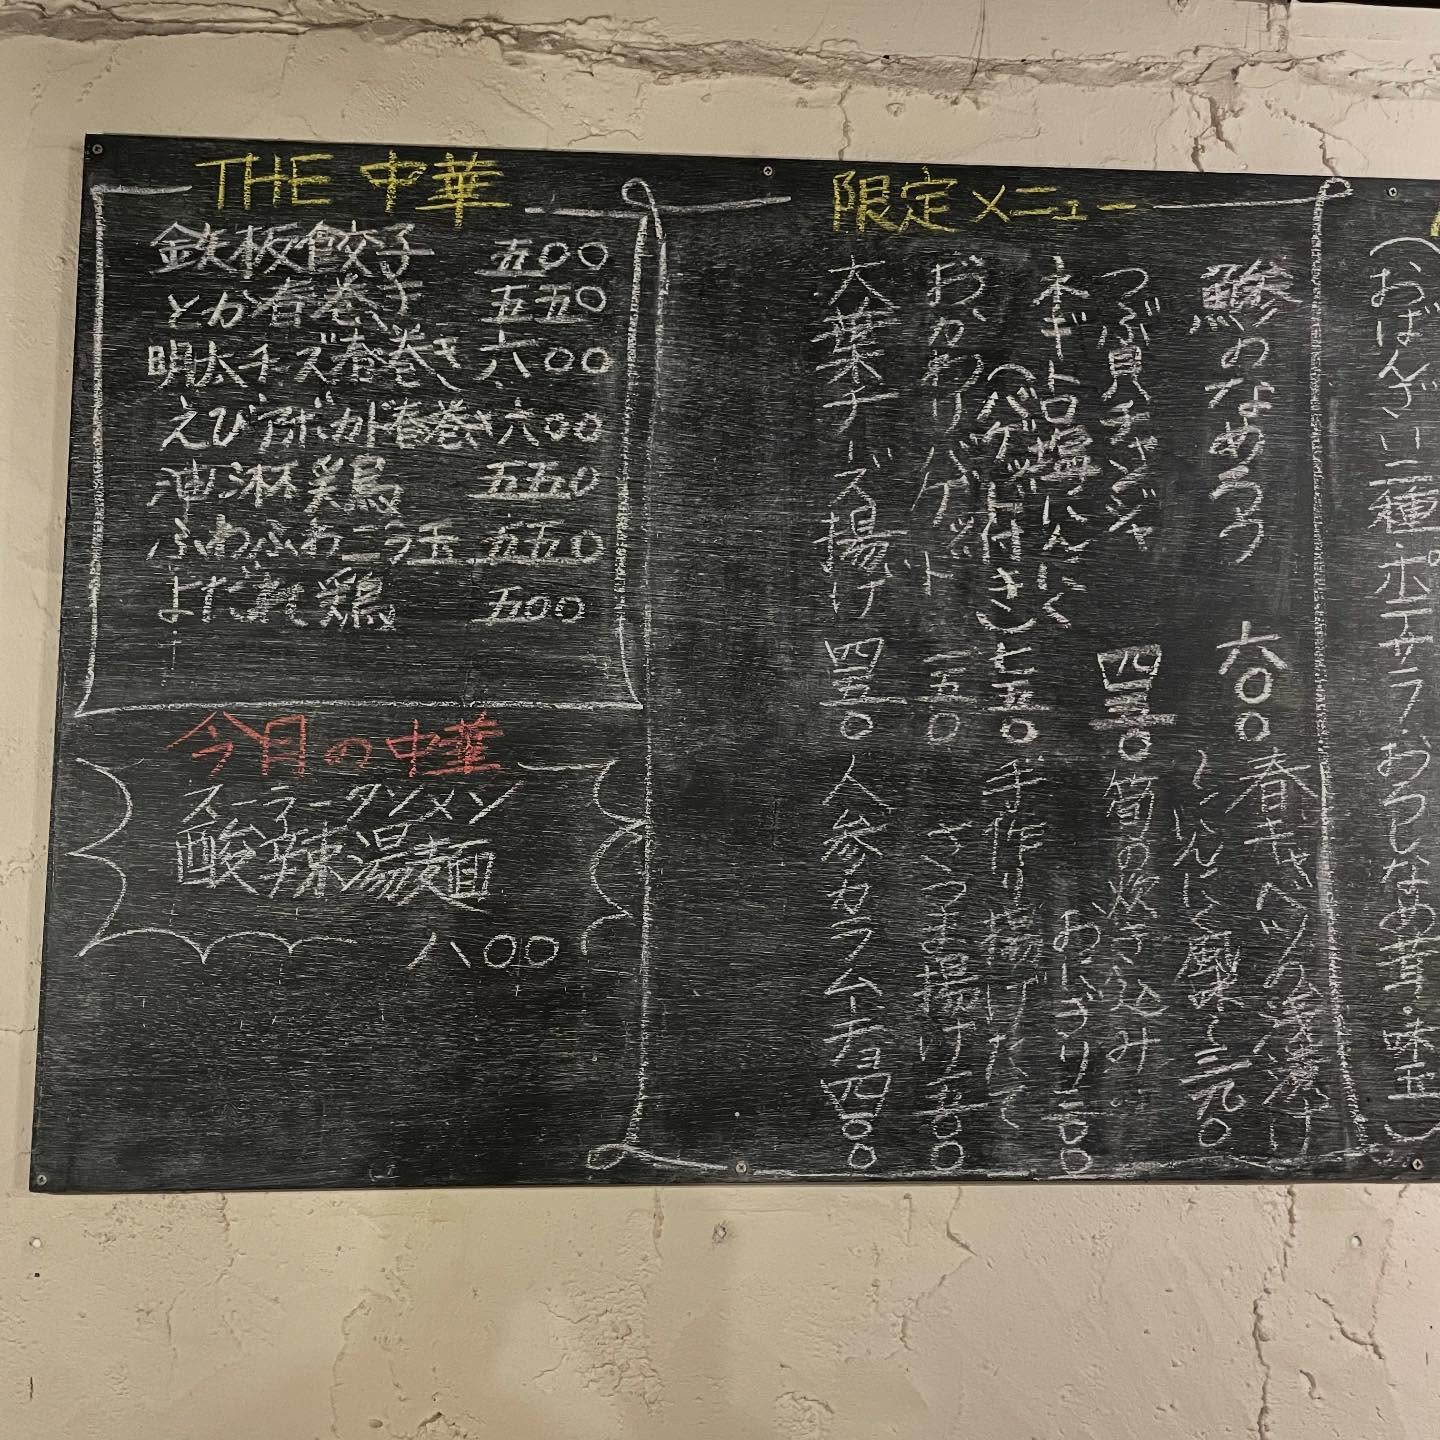 THE 中華
鉄板餃子 五〇〇
とか春巻き 五五〇
明太チーズ春巻き 六〇〇
えびアボカド春巻き 六〇〇
油淋鶏 五五〇
ふわふわニラ玉 五五〇
よだれ鶏 五〇〇
今月の中華
スーラータンメン
酸辣湯麺
八〇〇
限定メニュー
鯵のなめろう 六〇〇
つぶ貝チャンジャ 四五〇
ネギトロ塩にんにく
(バゲット付き) 七五〇
おかわりバゲット 一五〇
大葉チーズ揚げ 四五〇
春キャベツの浅漬け
〜にんにく風味〜 三九〇
筍の炊き込み
おにぎり 三〇〇
手作り揚げたて
さつま揚げ 五〇〇
人参カラムーチョ 四〇〇
(おばんざい二種・ポテサラ・おろしなめ茸・味玉)